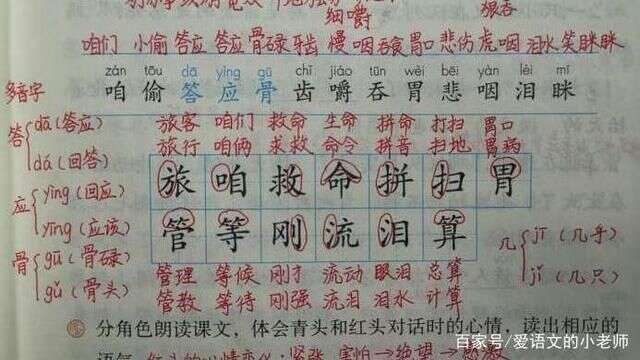 细嚼 狼吞
咱们 小偷 答应 答应 骨碌 牙齿 慢咽 吞食 胃口 悲伤 虎咽 泪水 笑眯眯
zán tōu dā yìng gū chǐ jiáo tūn wèi bēi yàn lèi mī
咱 偷 答 应 骨 齿 嚼 吞 胃 悲 咽 泪 眯
多音字
答 dā (答应)
dá (回答)
应 yìng (回应)
yīng (应该)
骨 gū (骨碌)
gǔ (骨头)
旅客 咱们 救命 生命 拼命 打扫 胃口
旅行 咱俩 求救 命令 拼音 扫地 胃病
旅 咱 救 命 拼 扫 胃
管 等 刚 流 泪 算
几 jī (几乎)
jǐ (几只)
管理 等候 刚才 流动 眼泪 总算
管教 等待 刚强 流泪 泪水 计算
分角色朗读课文,体会青头和红头对话时的心情,读出相应的
语气 红头的心情变化:紧张 害怕→绝望→
百家号/爱语文的小老师